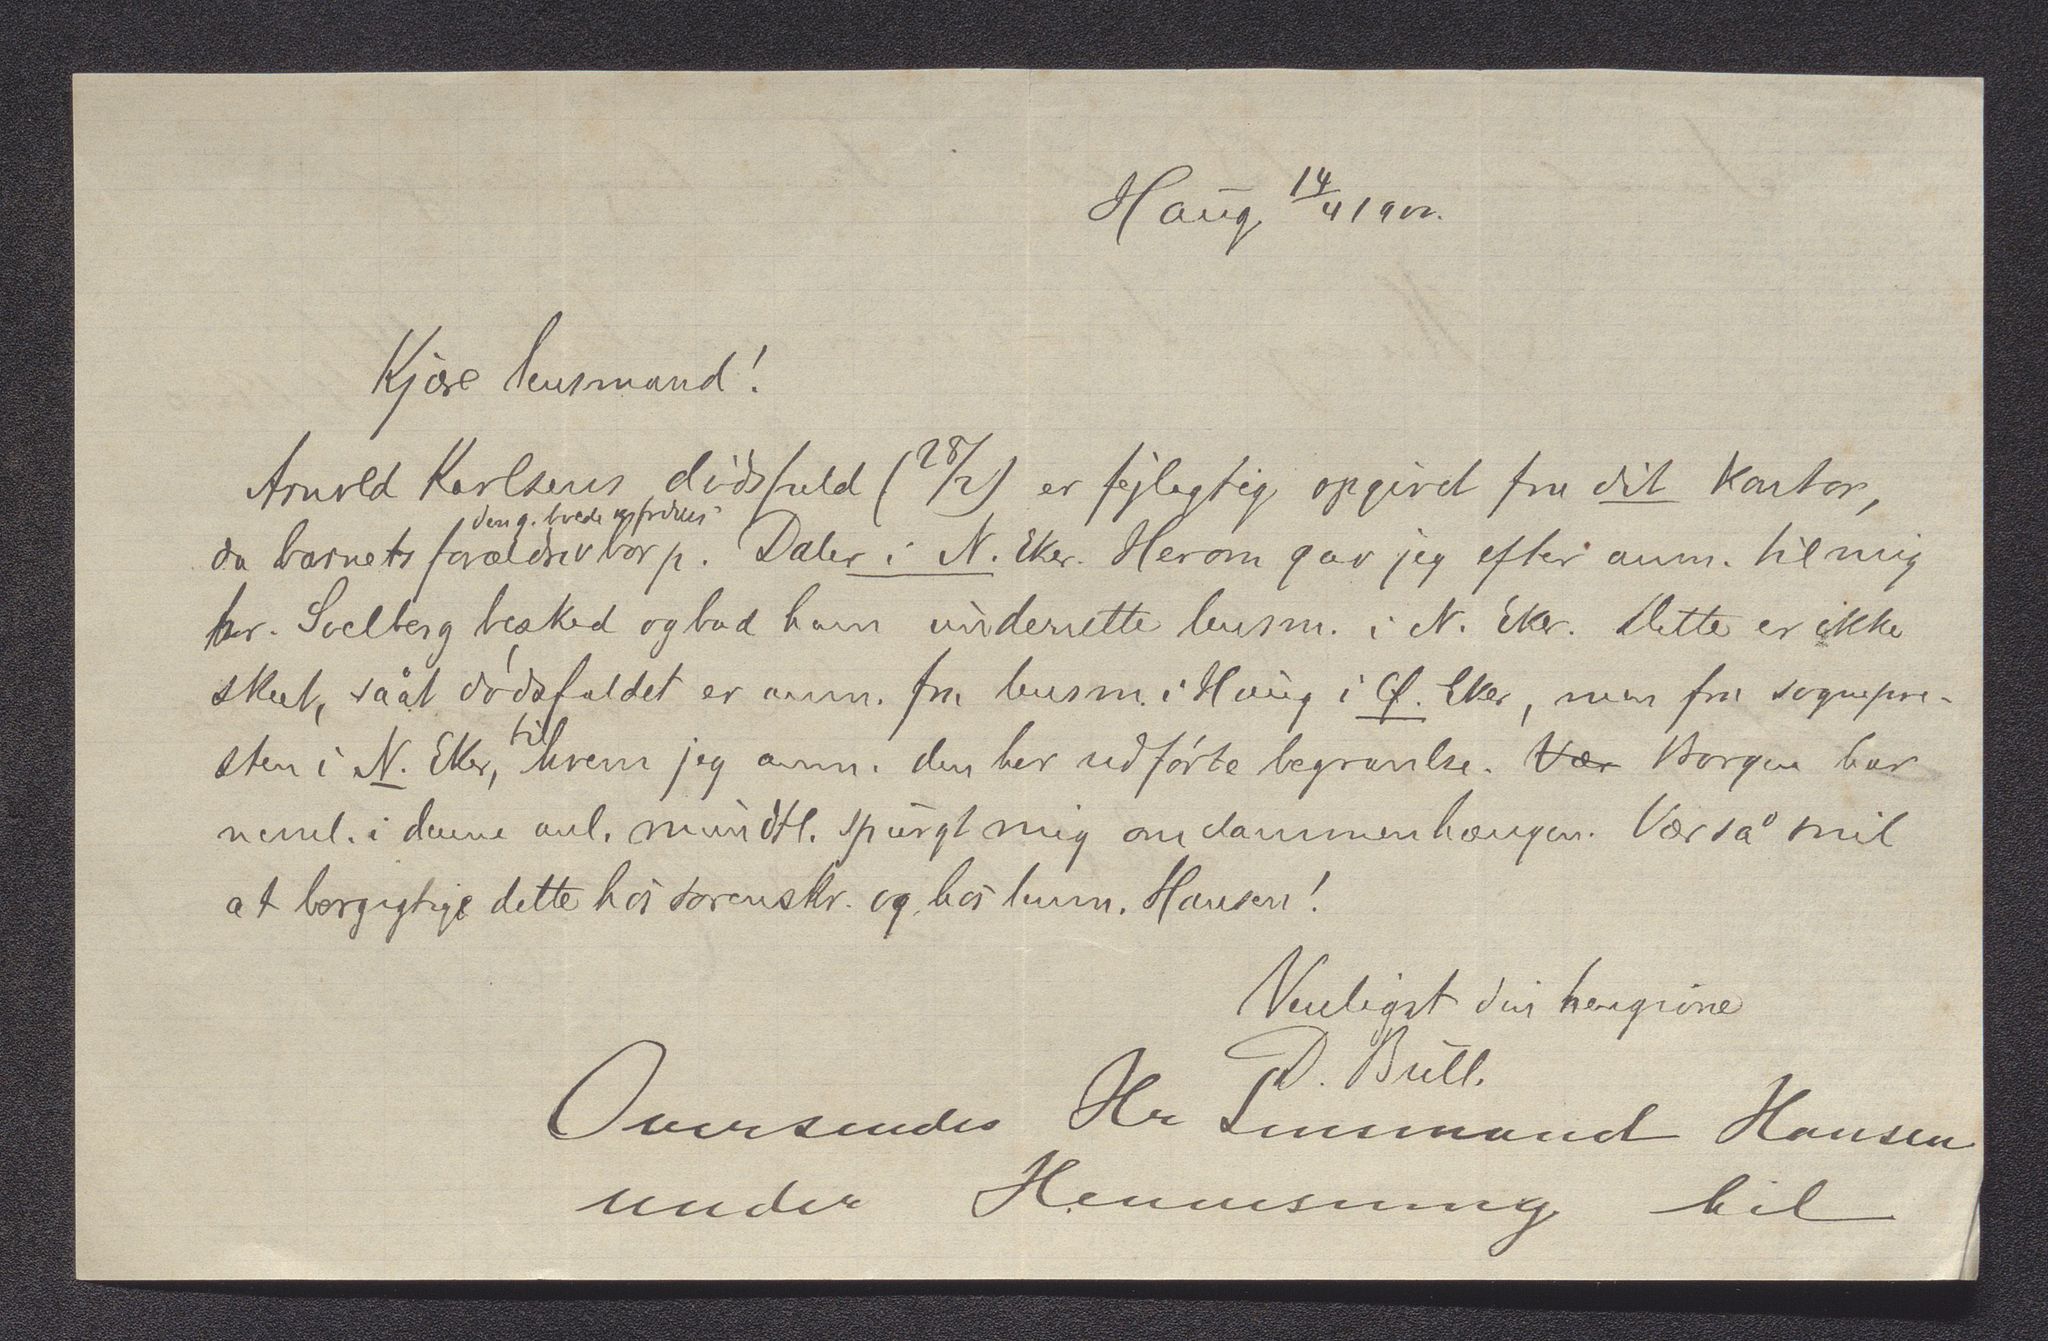 Haug 14/4 1900.
Kjære lensmand!
Arnold Karlsens dødsfald (28/2) er fejlagtig opgivet fra dit kontor,
den g. hvede opfødes
da barnets forældre bor p. Daler i N. Eker. Herom gav jeg efter anm. til mig
hr. Solberg besked og bad ham underrette lensm. i N. Eker. Dette er ikke
skeet, såat dødsfaldet er anm. fra lensm. i Haug i Ø. Eker, men fra sognepre-
sten i N. Eker, til hvem jeg anm. den her udførte begravelse. Vær Horgen har
neml. i denne anl. mündtl. spurgt mig om sammenhængen. Vær så snil
at bergigtige dette hos sorenskr. og hos lensm. Hansen!
Venligst din hengivne
D. Bull.
Oversendes Hr Lensmand Hansen
under Henvisning til